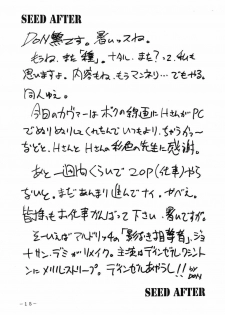 SEED AFTER
DON繁です。暑いッスね。
もうね、また「種」。ナカル、また？って、私も
思いますよ。内容もね、もうマンネリ…でもやる。
同人ゆえ。
今回のカヴァーはボクの線画にHさんがPC
でぬりぬりしてくれたんでいつもより、ちゃうがう～
などと。HさんとHさんの彩色の先生に感謝。
あと一週間くらいで20P(仕事)やら
ないと。まだあんまり進んでナイ。がべえ。
皆様もお仕事がんばって下さい。暑いですが。
そーいえばアルドリッチの「影なき狙撃者」、ジョ
ナサン・デミがリメイク。主演はデインゼルワシント
ンにメリルストリープ。デインゼルあやうし!!
by DON
SEED AFTER
-15-